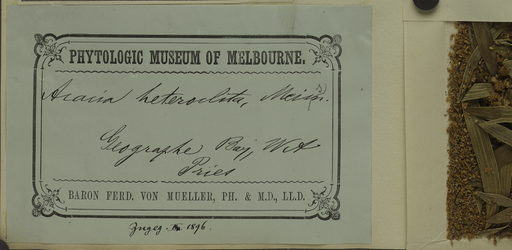 PHYTOLOGIC MUSEUM OF MELBOURNE.
Acacia heteroclita, Meisn.
Geographe Bay, WA
Pries
BARON FERD. VON MUELLER, PH. & M.D., LL.D.
Zugeg. 1896.